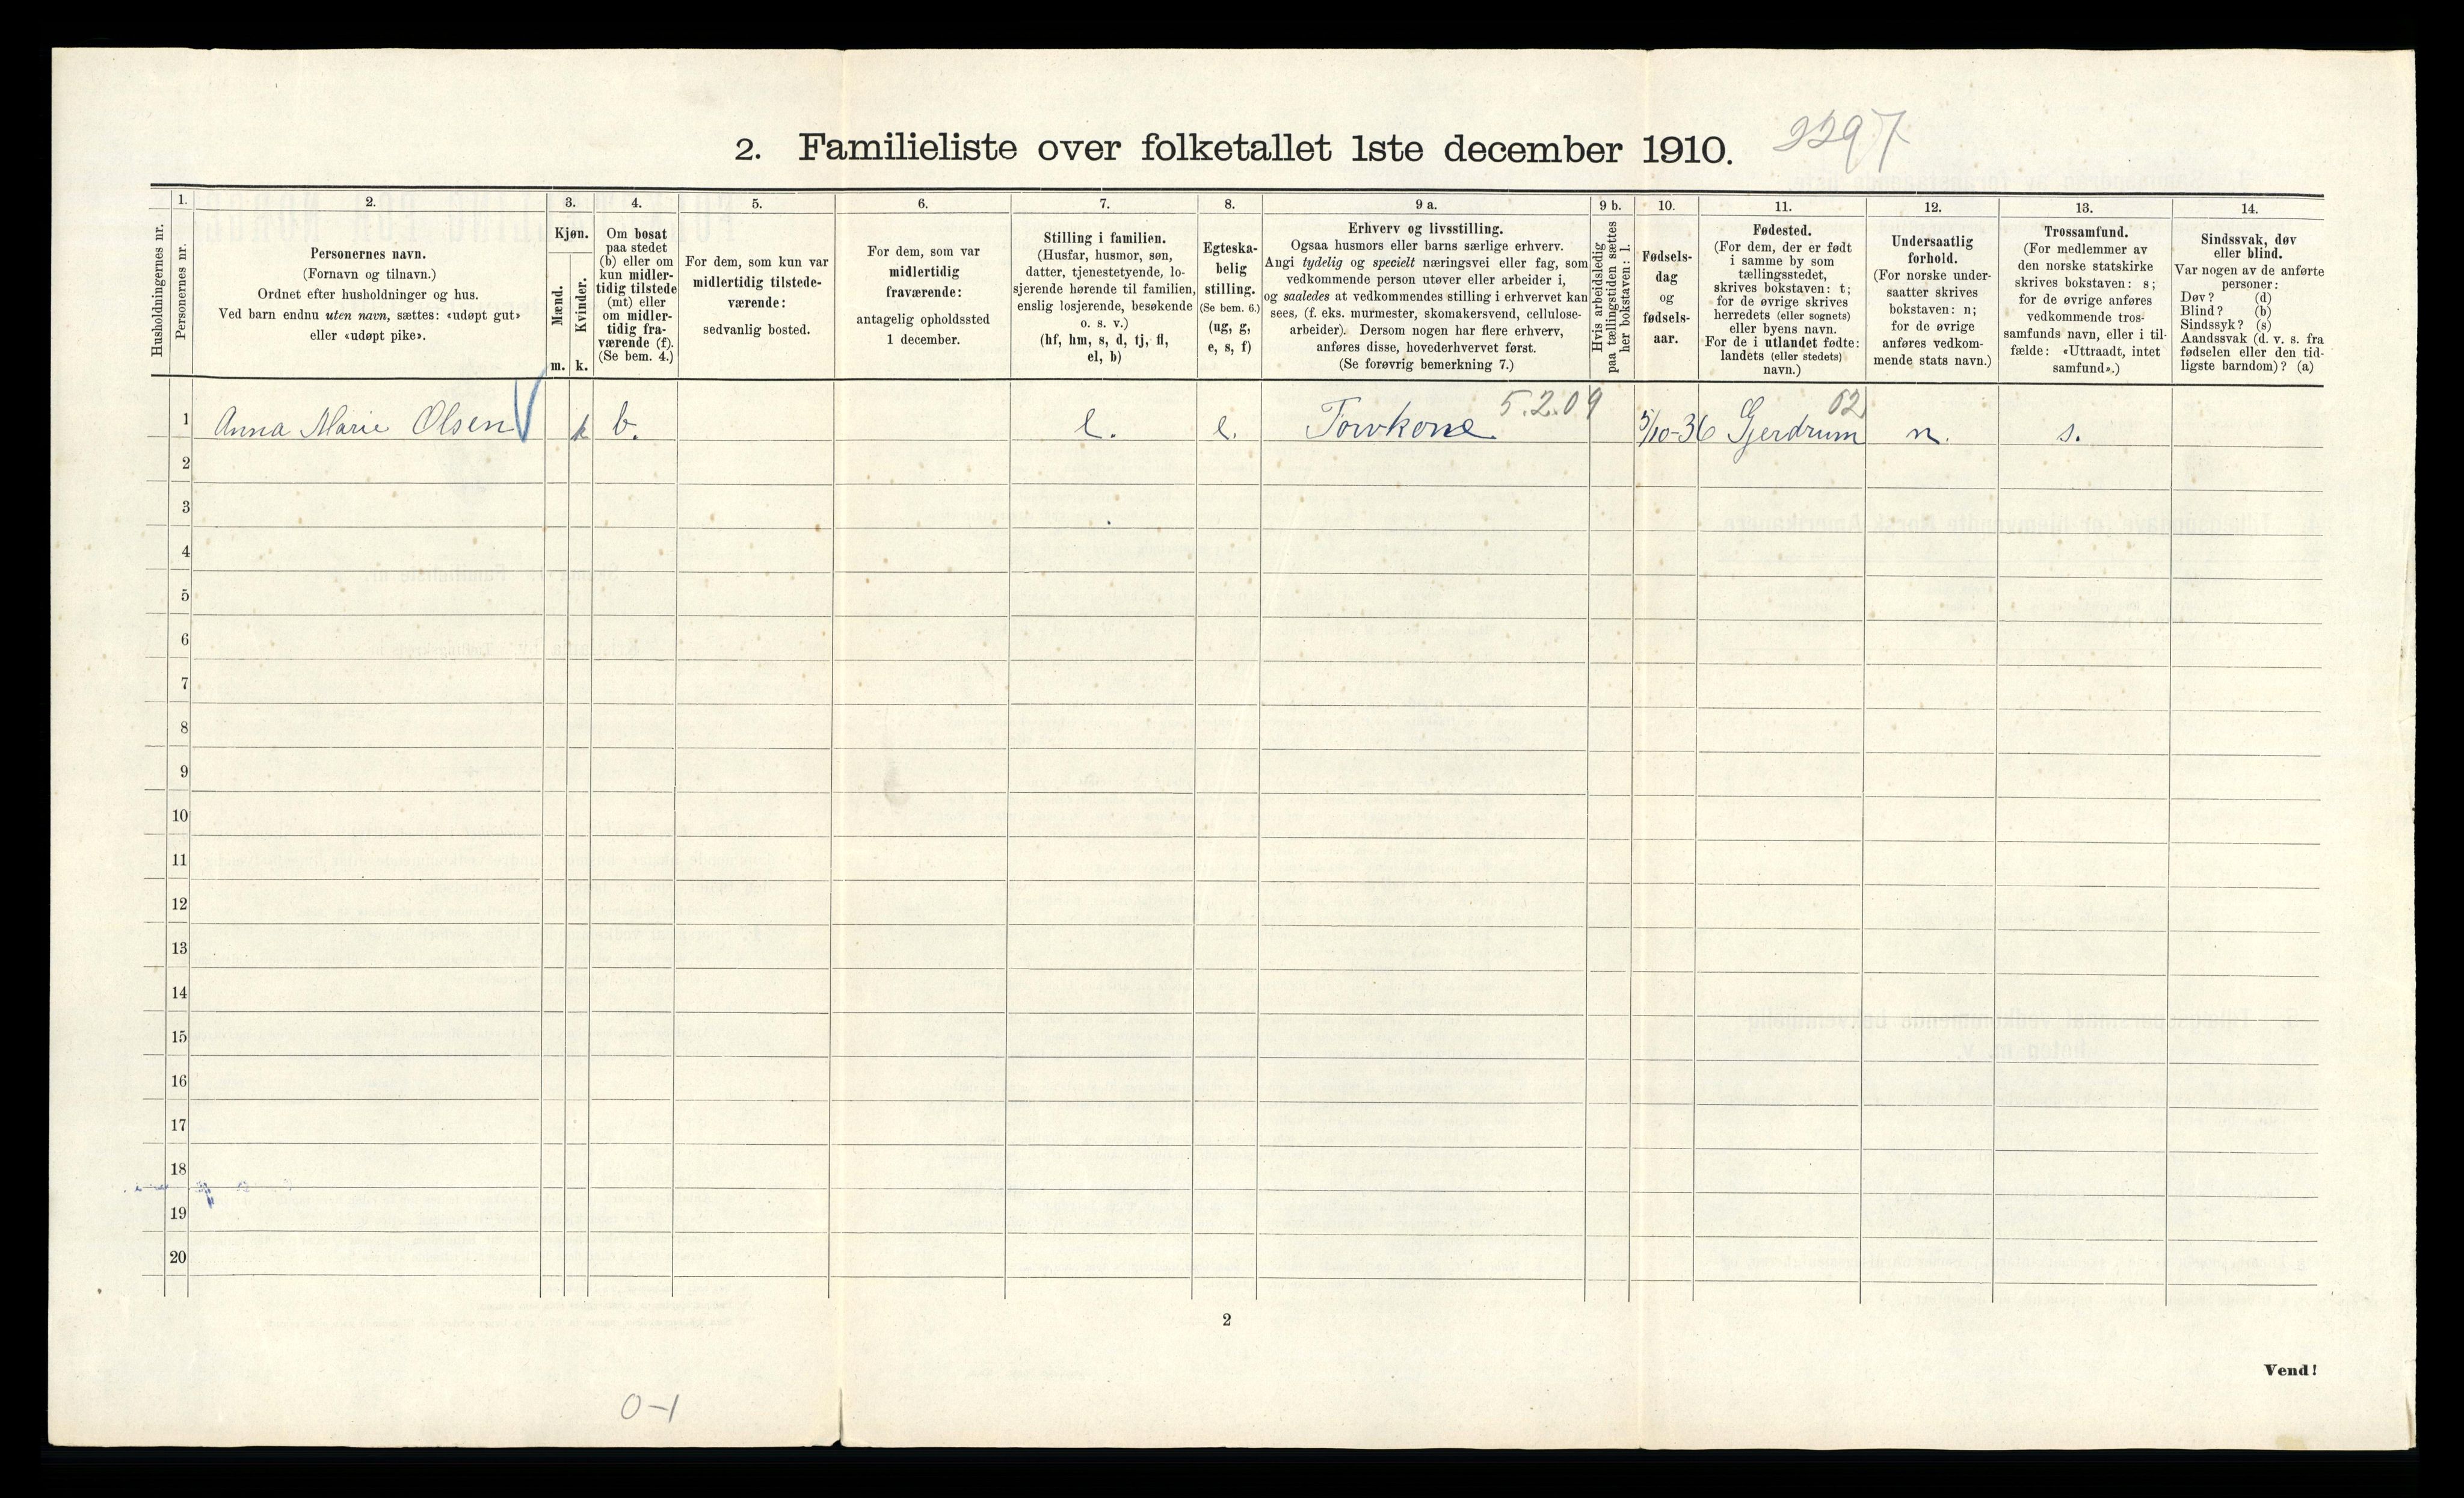 2. Familieliste over folketallet 1ste december 1910.
2297
Husholdningernes nr.
1.
Personernes nr.
2.
Personernes navn.
(Fornavn og tilnavn.)
Ordnet efter husholdninger og hus.
Ved barn endnu uten navn, sættes: «udøpt gut»
eller «udøpt pike».
3.
Kjøn.
Mænd.
Kvinder.
m. k.
4.
Om bosat
paa stedet
(b) eller om
kun midler-
tidig tilstede
(mt) eller
om midler-
tidig fra-
værende (f).
(Se bem. 4.)
5.
For dem, som kun var
midlertidig tilstede-
værende:
sedvanlig bosted.
6.
For dem, som var
midlertidig
fraværende:
antagelig opholdssted
1 december.
7.
Stilling i familien.
(Husfar, husmor, søn,
datter, tjenestetyende, lo-
sjerende hørende til familien,
enslig losjerende, besøkende
o. s. v.)
(hf, hm, s, d, tj, fl,
el, b)
8.
Egteska-
belig
stilling.
(Se bem. 6.)
(ug, g,
e, s, f)
9 a.
Erhverv og livsstilling.
Ogsaa husmors eller barns særlige erhverv.
Angi tydelig og specielt næringsvei eller fag, som
vedkommende person utøver eller arbeider i,
og saaledes at vedkommendes stilling i erhvervet kan
sees, (f. eks. murmester, skomakersvend, cellulose-
arbeider). Dersom nogen har flere erhverv,
anføres disse, hovederhvervet først.
(Se forøvrig bemerkning 7.)
9 b.
Hvis arbeidsledig
paa tællingstiden sættes
her bokstaven: l.
10.
Fødsels-
dag
og
fødsels-
aar.
11.
Fødested.
(For dem, der er født
i samme by som
tællingsstedet,
skrives bokstaven: t;
for de øvrige skrives
herredets (eller sognets)
eller byens navn.
For de i utlandet fødte:
landets (eller stedets)
navn.)
12.
Undersaatlig
forhold.
(For norske under-
saatter skrives
bokstaven: n;
for de øvrige
anføres vedkom-
mende stats navn.)
13.
Trossamfund.
(For medlemmer av
den norske statskirke
skrives bokstaven: s;
for de øvrige anføres
vedkommende tros-
samfunds navn, eller i til-
fælde: «Uttraadt, intet
samfund».)
14.
Sindssvak, døv
eller blind.
Var nogen av de anførte
personer:
Døv? (d)
Blind? (b)
Sindssyk? (s)
Aandssvak (d. v. s. fra
fødselen eller den tid-
ligste barndom)? (a)
5.2.09 02
1 Anna Marie Olsen k b. l. e. Torvkone. 5/10-36 Gjerdrum n. s.
2
3
4
5
6
7
8
9
10
11
12
13
14
15
16
17
18
19
20
2
Vend!
0-1